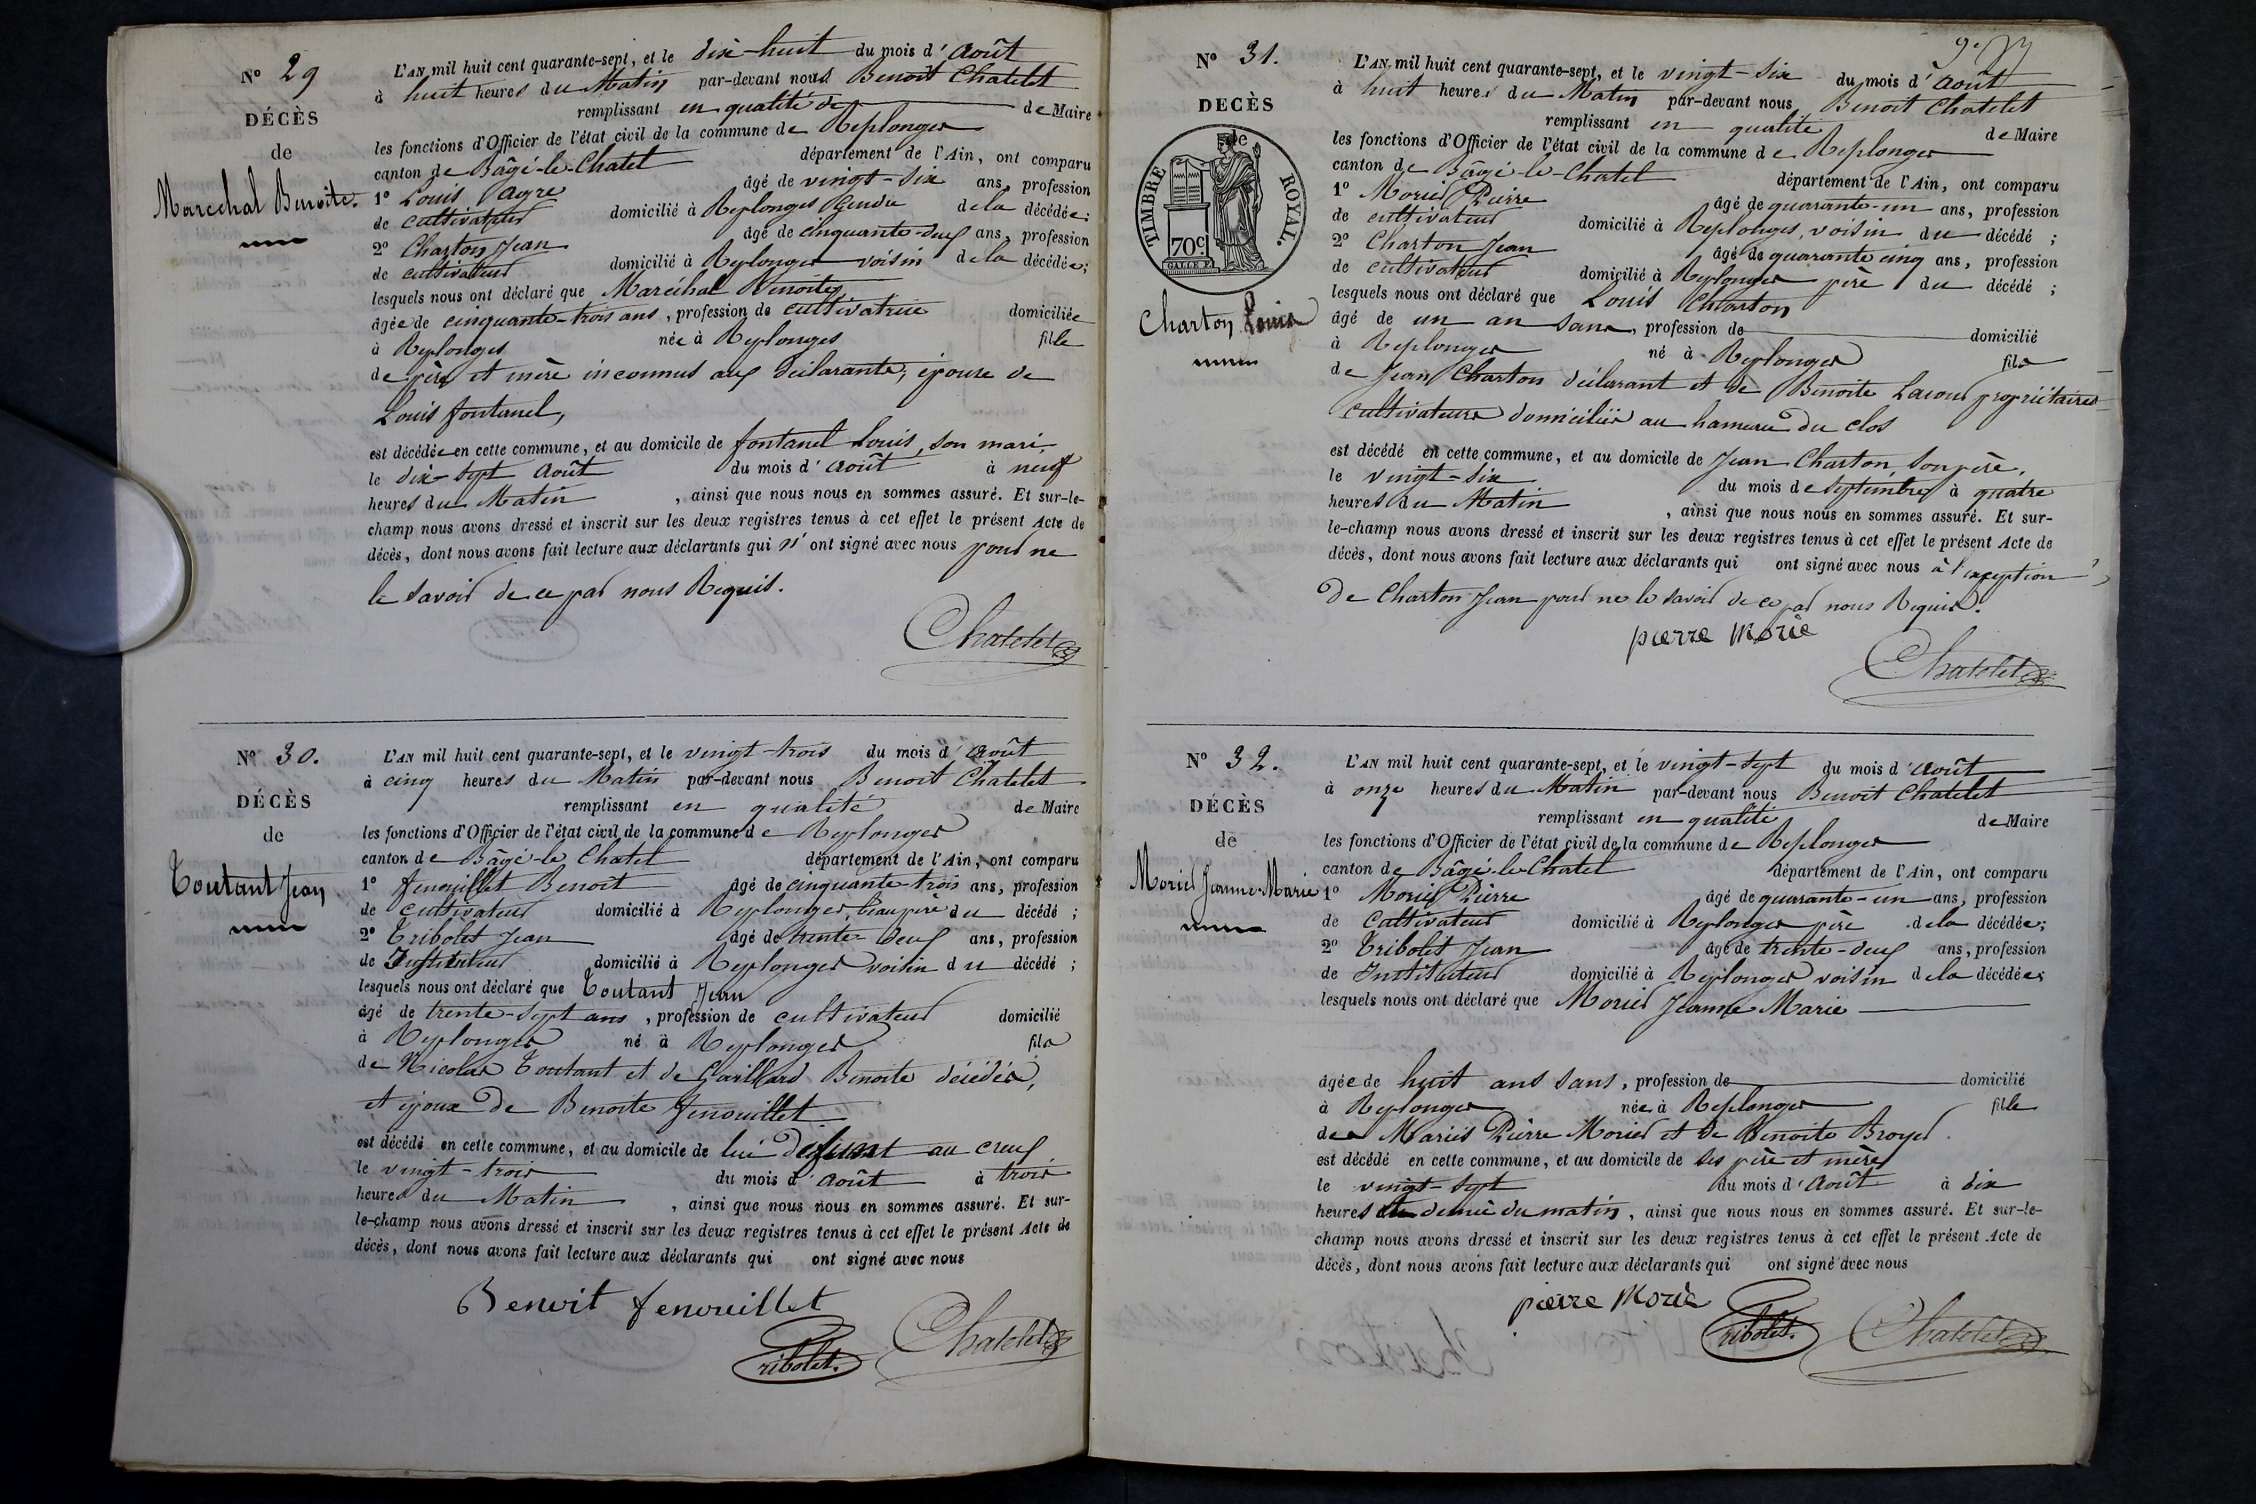 Nº 29
DÉCÈS
de
Marechal Benoite.
L'AN mil huit cent quarante-sept, et le dix-huit du mois d'Août
à huit heures du Matin par-devant nous Benoit Chatelet
remplissant en qualité de de Maire
les fonctions d'Officier de l'état civil de la commune de Replonges
canton de Bâgé-le-Chatel département de l'Ain, ont comparu
1º Louis Payre âgé de vingt-six ans, profession
de cultivateur domicilié à Replonges Gendre de la décédée;
2º Charton Jean âgé de cinquante-deux ans, profession
de cultivateur domicilié à Replonges voisin de la décédée;
lesquels nous ont déclaré que Maréchal Benoite
âgée de cinquante-trois ans, profession de cultivatrice domiciliée
à Replonges née à Replonges fille
de père et mère inconnus aux déclarants, épouse de
Louis fontanel,
est décédée en cette commune, et au domicile de fontanel Louis, son mari,
le dix-sept Août du mois d'Août à neuf
heures du Matin, ainsi que nous nous en sommes assuré. Et sur-le-
champ nous avons dressé et inscrit sur les deux registres tenus à cet effet le présent Acte de
décès, dont nous avons fait lecture aux déclarants qui n'ont signé avec nous pour ne
le savoir de ce par nous Requis.
Chatelet
Nº 30.
DÉCÈS
de
Toutant Jean
L'AN mil huit cent quarante-sept, et le vingt-trois du mois d'Août
à cinq heures du Matin par-devant nous Benoit Chatelet
remplissant en qualité de Maire
les fonctions d'Officier de l'état civil de la commune de Replonges
canton de Bâgé-le Chatel département de l'Ain, ont comparu
1º fenouillet Benoit âgé de cinquante-trois ans, profession
de cultivateur domicilié à Replonges, beau père du décédé;
2º Tribolet Jean âgé de trente-deux ans, profession
de Instituteur domicilié à Replonges voisin du décédé;
lesquels nous ont déclaré que Toutant Jean
âgé de trente-sept ans, profession de cultivateur domicilié
à Replonges né à Replonges fils
de Nicolas Toutant et de Gaillard Benoite décédés,
et époux de Benoite fenouillet
est décédé en cette commune, et au domicile de lui défunt au creux
le vingt-trois du mois d'Août à trois
heures du Matin, ainsi que nous nous en sommes assuré. Et sur-
le-champ nous avons dressé et inscrit sur les deux registres tenus à cet effet le présent Acte de
décès, dont nous avons fait lecture aux déclarants qui ont signé avec nous
Benoit fenouillet
Tribolet. Chatelet
Nº 31.
DECÈS
de
TIMBRE ROYAL.
70c
Charton Louis
L'AN mil huit cent quarante-sept, et le vingt-six du mois d'Août
à huit heures du Matin par-devant nous Benoit Chatelet
remplissant en qualité de Maire
les fonctions d'Officier de l'état civil de la commune de Replonges
canton de Bâgé-le-Chatel département de l'Ain, ont comparu
1º Morier Pierre âgé de quarante-un ans, profession
de cultivateur domicilié à Replonges, voisin du décédé;
2º Charton Jean âgé de quarante cinq ans, profession
de cultivateur domicilié à Replonges père du décédé;
lesquels nous ont déclaré que Louis Charton
âgé de un an sans, profession de domicilié
à Replonges né à Replonges fils
de Jean Charton déclarant et de Benoite Lacour propriétaires
cultivateurs domiciliés au hameau du clos
est décédé en cette commune, et au domicile de Jean Charton, son père,
le vingt-six du mois de Septembre à quatre
heures du Matin, ainsi que nous nous en sommes assuré. Et sur-
le-champ nous avons dressé et inscrit sur les deux registres tenus à cet effet le présent Acte de
décès, dont nous avons fait lecture aux déclarants qui ont signé avec nous à l'exception
de Charton Jean pour ne le savoir de ce par nous Requis.
pierre Morie
Chatelet
Nº 32.
DÉCÈS
de
Morier Jeanne-Marie
L'AN mil huit cent quarante-sept, et le vingt-sept du mois d'Août
à onze heures du Matin par-devant nous Benoit Chatelet
remplissant en qualité de Maire
les fonctions d'Officier de l'état civil de la commune de Replonges
canton de Bâgé-le-Chatel département de l'Ain, ont comparu
1º Morier Pierre âgé de quarante-un ans, profession
de Cultivateur domicilié à Replonges père de la décédée;
2º Tribolet Jean âgé de trente-deux ans, profession
de Instituteur domicilié à Replonges voisin de la décédée;
lesquels nous ont déclaré que Morier Jeanne Marie
âgée de huit ans sans, profession de domicilié
à Replonges née à Replonges fille
de Mariés Pierre Morier et de Benoite Broyer
est décédé en cette commune, et au domicile de ses père et mère
le vingt-sept du mois d'Août à dix
heures et demie du matin, ainsi que nous nous en sommes assuré. Et sur-le-
champ nous avons dressé et inscrit sur les deux registres tenus à cet effet le présent Acte de
décès, dont nous avons fait lecture aux déclarants qui ont signé avec nous
pierre Morie
Tribolet. Chatelet